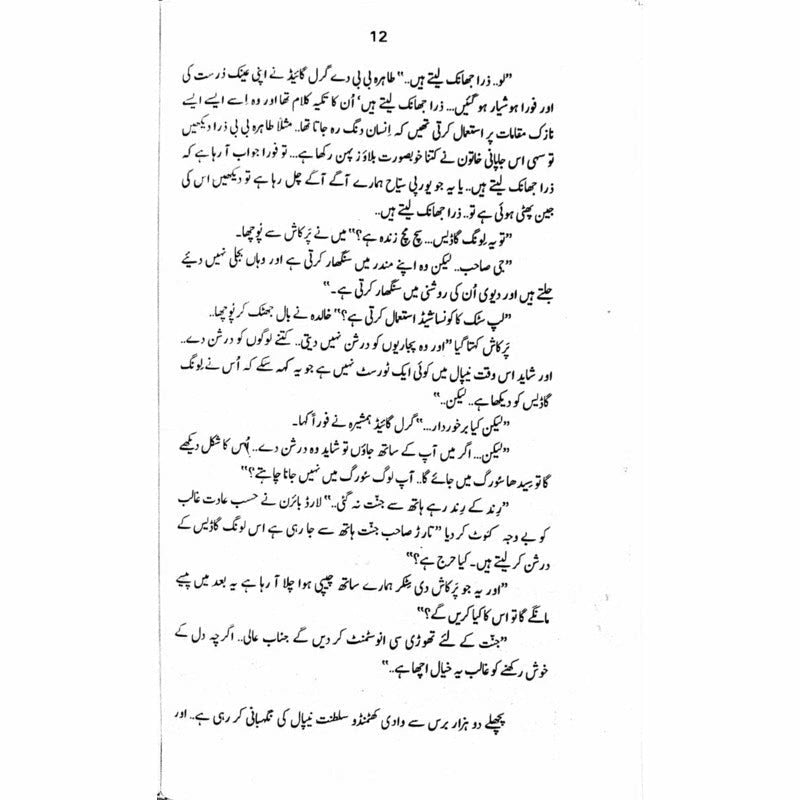 12
”لو.. ذرا جھانک لیتے ہیں..“ طاہرہ بی بی دے گرل گائیڈ نے اپنی عینک درست کی
اور فورا ہوشیار ہو گئیں... ذرا جھانک لیتے ہیں‘ اُن کا تکیہ کلام تھا اور وہ اِسے ایسے ایسے
نازک مقامات پر استعمال کرتی تھیں کہ اِنسان دنگ رہ جاتا تھا.. مثلاً طاہرہ بی بی ذرا دیکھیں
تو سہی اس جاپانی خاتون نے کتنا خوبصورت بلاؤز پہن رکھا ہے... تو فورا جواب آ رہا ہے کہ
ذرا جھانک لیتے ہیں.. یا یہ جو یورپی سیّاح ہمارے آگے آگے چل رہا ہے تو دیکھیں اس کی
جین پھٹی ہوئی ہے تو.. ذرا جھانک لیتے ہیں..
”تو یہ لِونگ گاڈیس... سچ مچ زندہ ہے؟“ میں نے پَرکاش سے پُوچھا۔
”جی صاحب.. لیکن وہ اپنے مندر میں سنگھار کرتی ہے اور وہاں بجلی نہیں دیئے
جلتے ہیں اور دیوی اُن کی روشنی میں سنگھار کرتی ہے۔“
”لپ سٹک کا کونسا شیڈ استعمال کرتی ہے؟“ خالدہ نے بال جھٹک کر پُوچھا..
پَرکاش کہتا گیا ”اور وہ پجاریوں کو درشن نہیں دیتی.. کتنے لوگوں کو درشن دے..
اور شاید اس وقت نیپال میں کوئی ایک ٹورسٹ نہیں ہے جو یہ کہہ سکے کہ اُس نے لِونگ
گاڈیس کو دیکھا ہے.. لیکن..“
”لیکن کیا برخوردار...“ گرل گائیڈ ہمشیرہ نے فوراً کہا۔
”لیکن... اگر میں آپ کے ساتھ جاؤں تو شاید وہ درشن دے.. اُس کا شکل دیکھے
گا تو سِیدھا سُورگ میں جائے گا.. آپ لوگ سُورگ میں نہیں جانا چاہتے؟“
”رِند کے رِند رہے ہاتھ سے جنّت نہ گئی..“ لارڈ بائرن نے حسب عادت غالب
کو بے وجہ کنوٹ کر دیا ”تارڑ صاحب جنّت ہاتھ سے جا رہی ہے اس لونگ گاڈیس کے
درشن کر لیتے ہیں۔ کیا حرج ہے؟“
”اور یہ جو پَرکاش دی سِنکر ہمارے ساتھ چیپی ہوا چلا آ رہا ہے یہ بعد میں پیسے
مانگے گا تو اس کا کیا کریں گے؟“
”جنّت کے لئے تھوڑی سی انوسٹمنٹ کر دیں گے جناب عالی.. اگرچہ دل کے
خوش رکھنے کو غالب یہ خیال اچھا ہے..“
پچھلے دو ہزار برس سے وادی کھٹمنڈو سلطنت نیپال کی نگہبانی کر رہی ہے.. اور